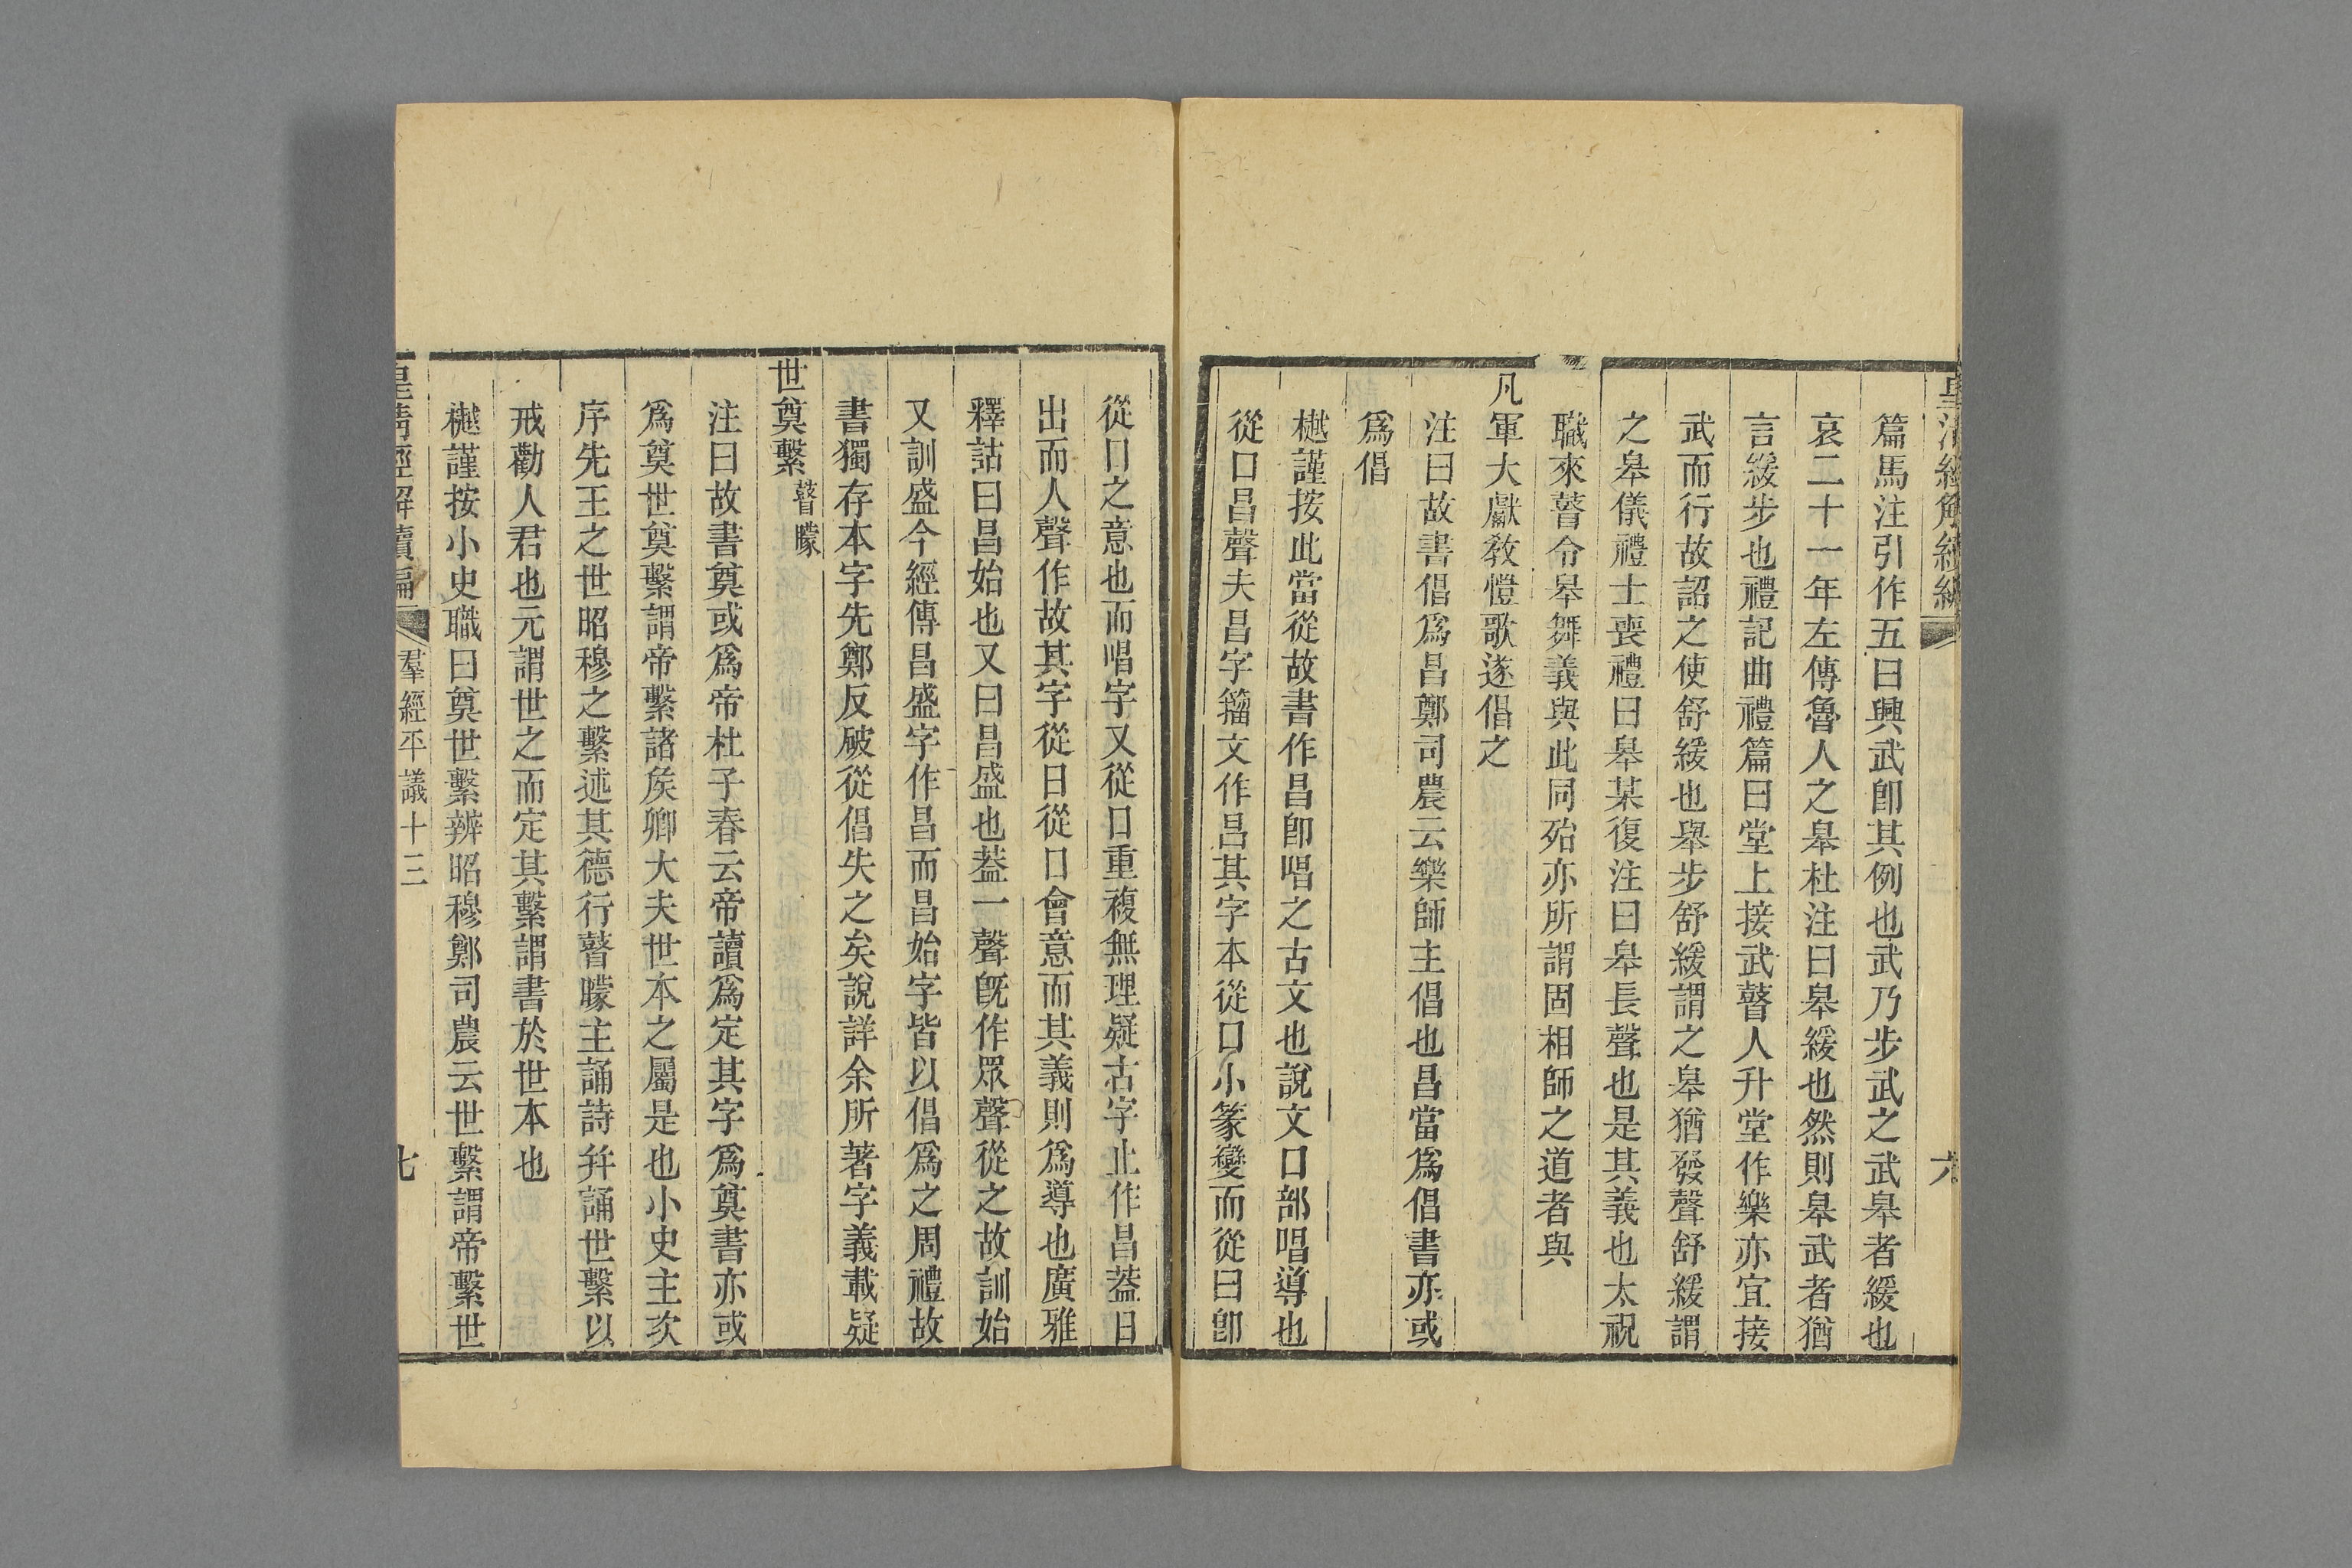 篇馬注引作五曰興武卽其例也武乃步武之武皋者緩也
哀二十一年左傳魯人之皋杜注曰皋緩也然則皋武者猶
言緩步也禮記曲禮篇曰堂上接武瞽人升堂作樂亦宜接
武而行故詔之使舒緩也舉步舒緩謂之皋猶發聲舒緩謂
之皋儀禮士喪禮曰皋某復注曰皋長聲也是其義也太祝
職來瞽令皋舞義與此同殆亦所謂固相師之道者與
凡軍大獻敎愷歌遂倡之
注曰故書倡爲昌鄭司農云樂師主倡也昌當爲倡書亦或
爲倡
樾謹按此當從故書作昌卽唱之古文也說文口部唱導也
從口昌聲夫昌字籀文作昌其字本從口小篆變而從曰卽
從口之意也而唱字又從口重複無理疑古字止作昌葢日
出而人聲作故其字從日從口會意而其義則爲導也廣雅
釋詁曰昌始也又曰昌盛也葢一聲旣作眾聲從之故訓始
又訓盛今經傳昌盛字作昌而昌始字皆以倡爲之周禮故
書獨存本字先鄭反破從倡失之矣說詳余所著字義載疑
世奠繫瞽矇
注曰故書奠或爲帝杜子春云帝讀爲定其字爲奠書亦或
爲奠世奠繫謂帝繫諸矦卿大夫世本之屬是也小史主次
序先王之世昭穆之繫述其德行瞽矇主誦詩幷誦世繫以
戒勸人君也元謂世之而定其繫謂書於世本也
樾謹按小史職曰奠世繫辨昭穆鄭司農云世繫謂帝繫世
皇淸經解續編
羣經平議十三
七